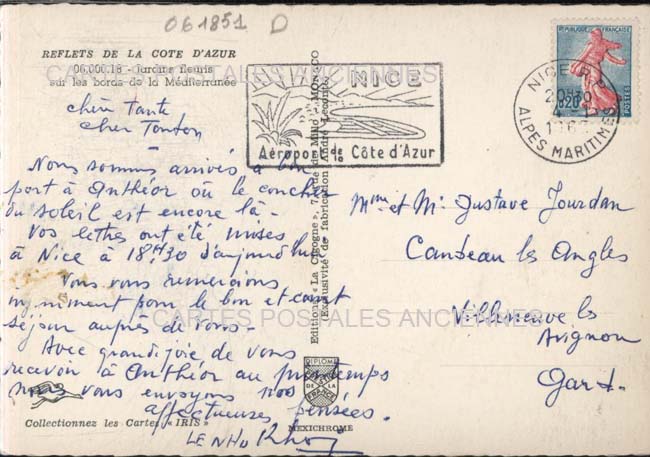 061851 D
REFLETS DE LA COTE D'AZUR
06.000.18 - Jardins fleuris
sur les bords de la Méditerranée
CARTES POSTALES ANCIENNES
chère Tante
cher Tonton
Nous sommes arrivés à bon
port à Anthéor où le coucher
du soleil est encore là -
Vos lettres ont été mises
à Nice à 18H30 d'aujourd'hui
Nous vous remercions
infiniment pour le bon et court
séjour auprès de vous -
Avec grande joie de vous
recevoir à Anthéor au printemps
nous vous envoyons nos
affectueuses pensées.
LENHO
Collectionnez les Cartes «IRIS»
NICE
Aéroport de la Côte d'Azur
Editions «La Cigogne», 7,
MONACO
Exclusivité de fabrication André Leconte
DIPLOME
DE LA
FRANCE
MEXICHROME
REPUBLIQUE FRANÇAISE
0,20
POSTES
NICE R.P.
20H30
4
196
ALPES MARITIMES
Mme et Mr Gustave Jourdan
Candeau les Angles
Villeneuve les
Avignon
Gard.
CARTES POSTALES ANCIENNES